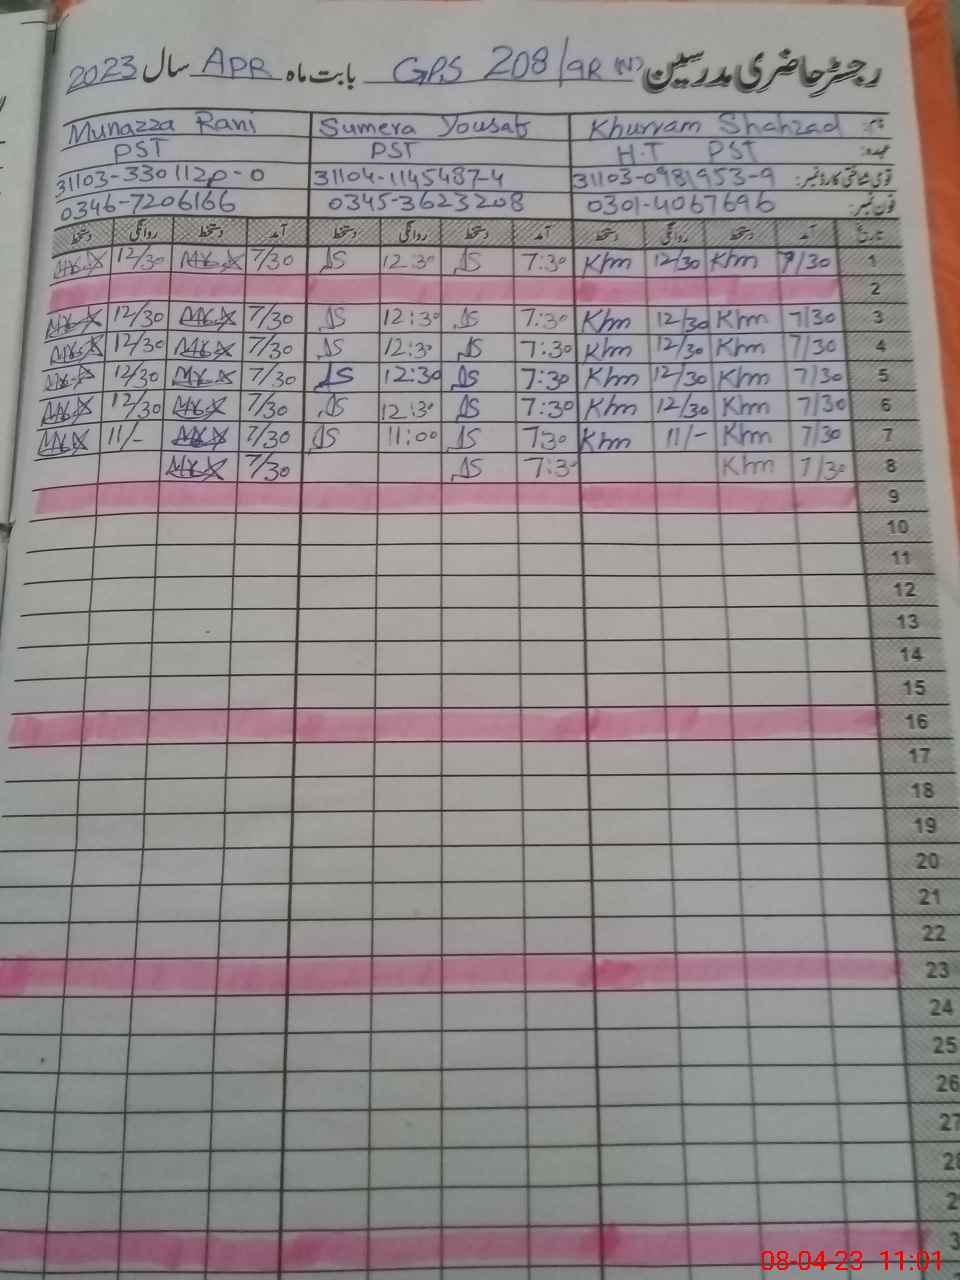 رجسٹر حاضری مدرسین GPS 208/9R (N) بابت ماہ APR سال 2023
نام: Khurram Shahzad Sumera Yousaf Munazza Rani
عہدہ: H.T PST PST PST
قومی شناختی کارڈ نمبر: 31103-0981953-9 31104-1145487-4
فون نمبر: 0301-4067696 0345-3623208 0346-7206166
تاریخ آمد دستخط روانگی دستخط آمد دستخط روانگی دستخط آمد دستخط روانگی دستخط
1 7/30 Khm 12/30 Khm 7:30 12:30 7/30 12/30
2
3 7/30 Khm 12/30 Khm 7:30 12:30 7/30 12/30
4 7/30 Khm 12/30 Khm 7:30 12:30 7/30 12/30
5 7/30 Khm 12/30 Khm 7:30 12:30 7/30 12/30
6 7/30 Khm 12/30 Khm 7:30 12:30 7/30 12/30
7 7/30 Khm 11/- Khm 7:30 11:00 7/30 11/-
8 7/30 Khm 7:30 7/30
9
10
11
12
13
14
15
16
17
18
19
20
21
22
23
24
25
26
27
08-04-23 11:01